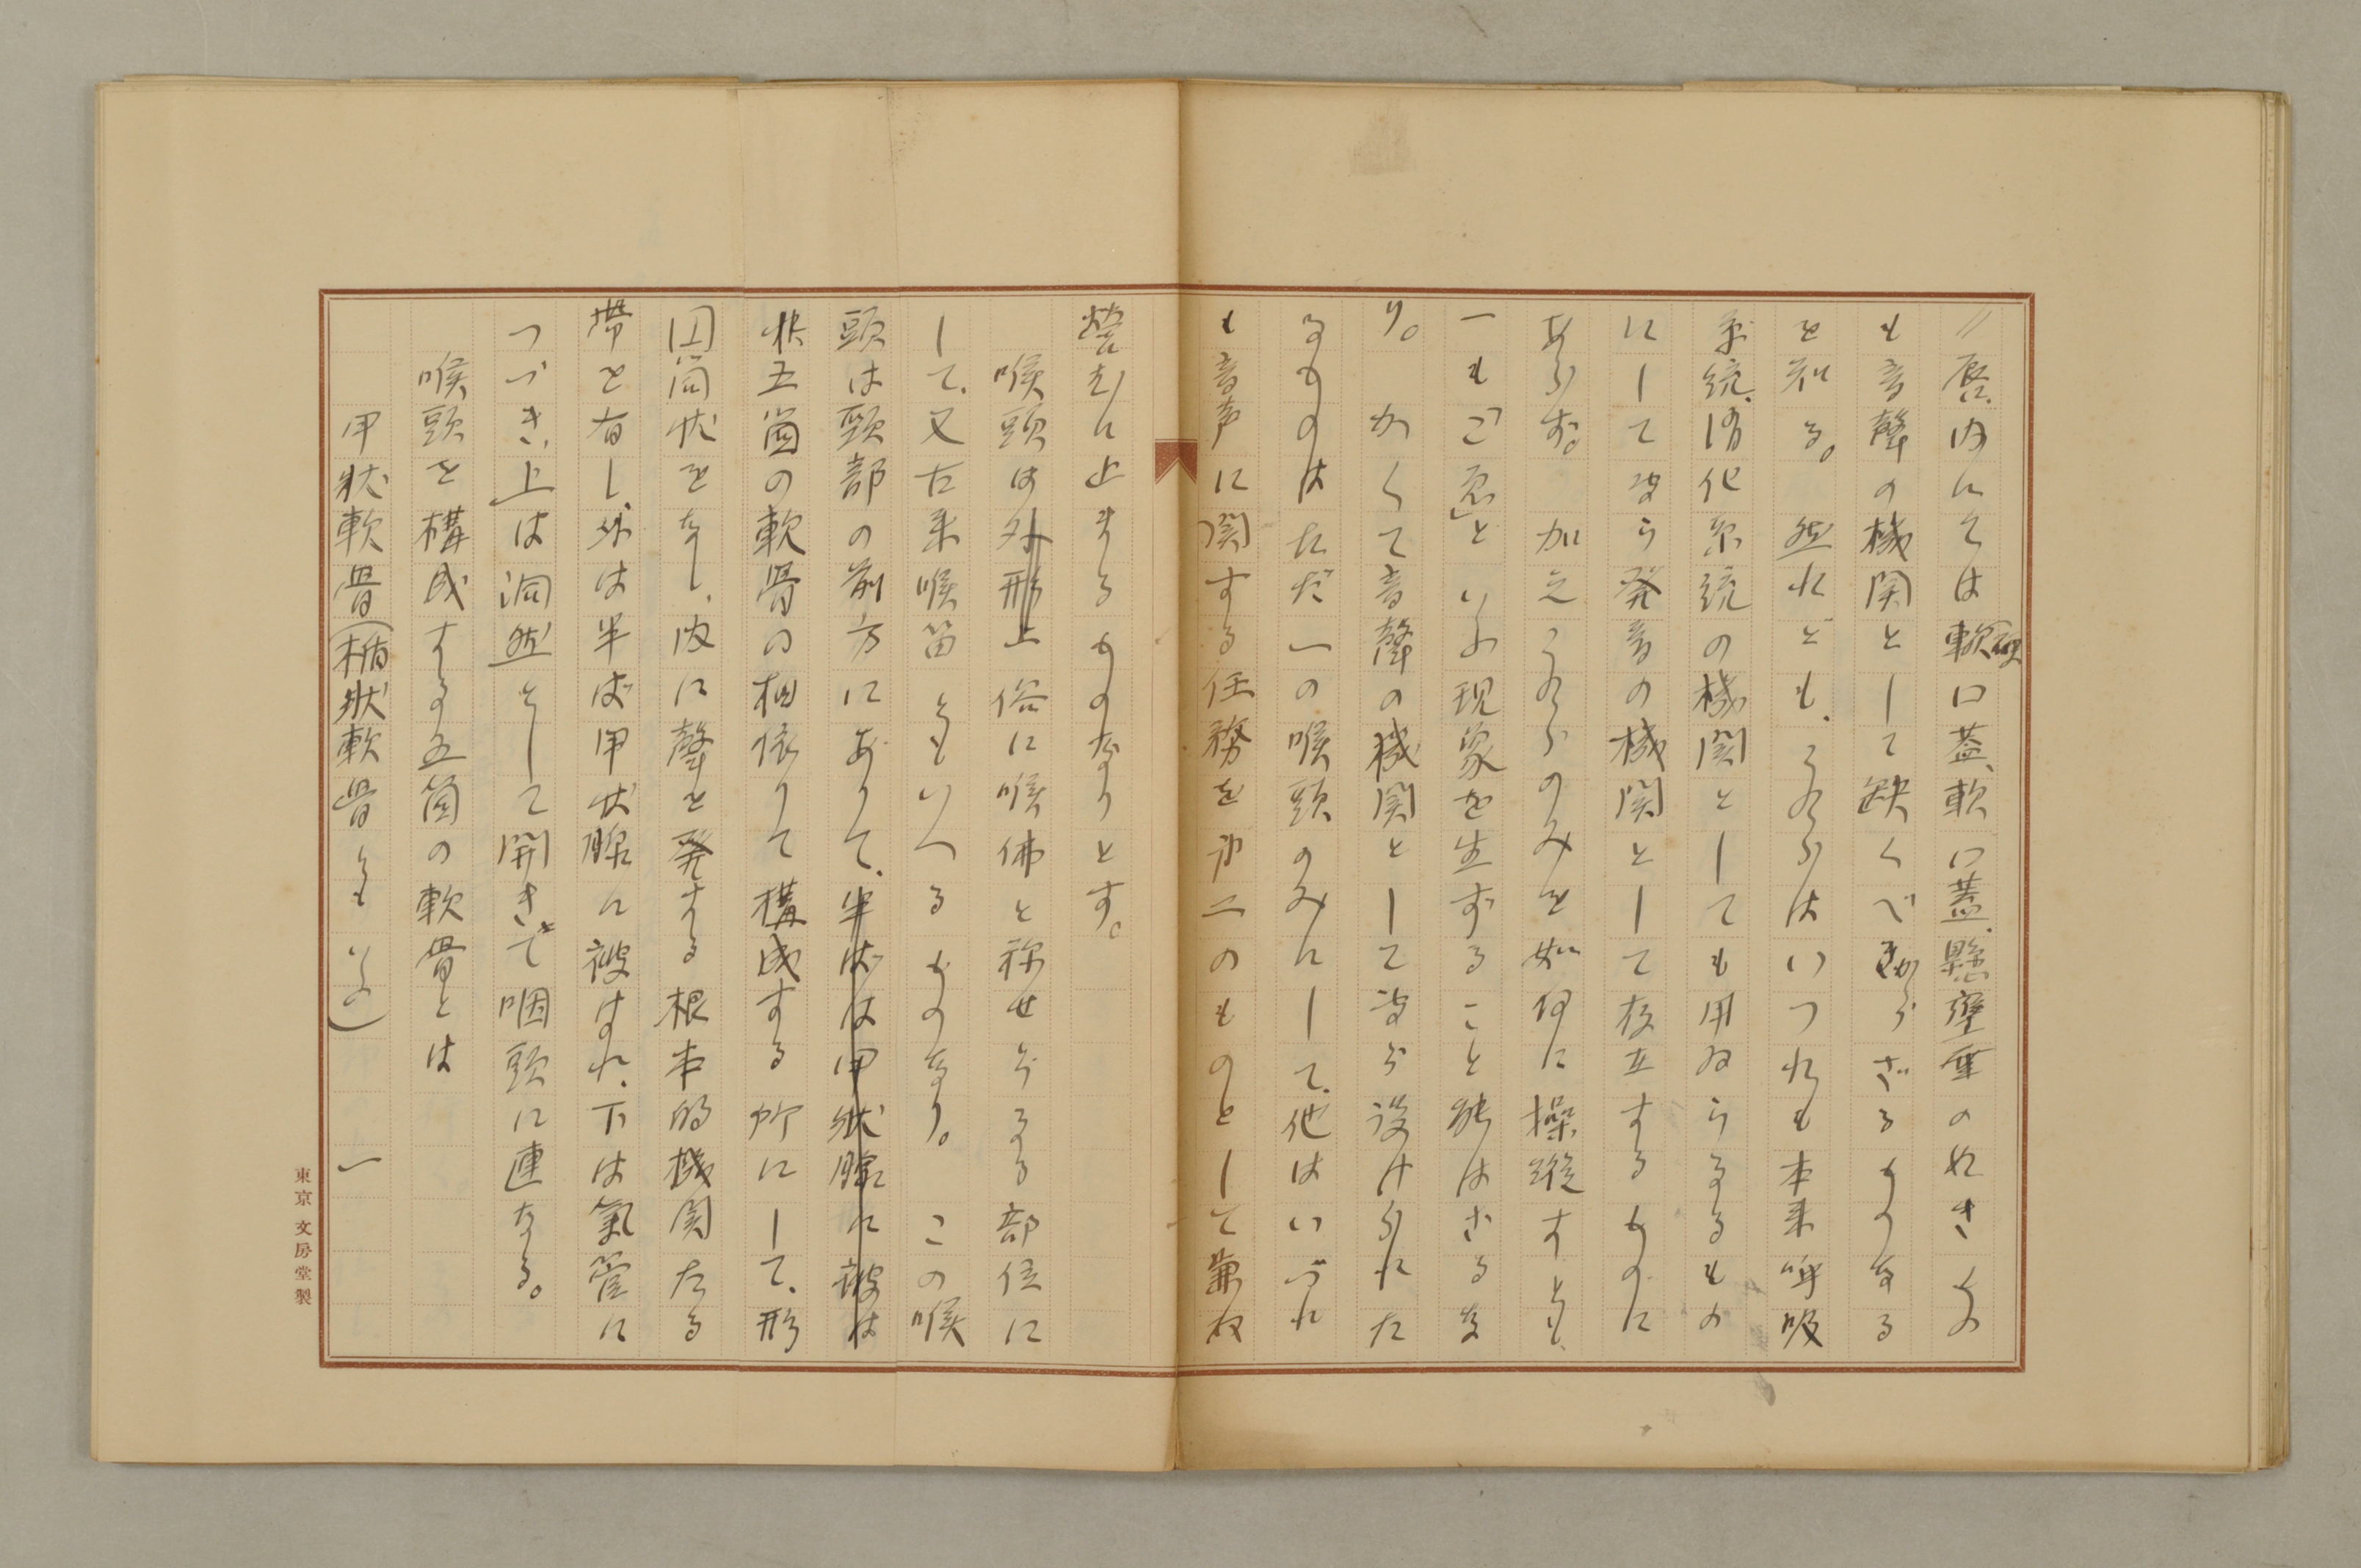 〃唇、内にては軟硬口蓋、軟口蓋、懸壅垂の如きもの
も音聲の機関として缺くべからざるものなる
を知る。然れども、これらはいつれも本来呼吸
系統、消化系統の機関としても用ゐらるるもの
にして専ら発音の機関として存立するものに
あらず。加之これらのみを如何に操縦すとも、
一も「ご急」といふ現象を生ずること能はざるな
り。かくて音聲の機関として専ら設けられた
るものはただ一の喉頭のみにして、他はいづれ
も音声に関する任務を第二のものとして兼ね
營むに止まるものなりとす。
喉頭は外形上俗に喉佛と称せらるる部位に
して、又古来喉笛ともいへるものなり。この喉
頭は頸部の前方にありて、半ばは甲状腺に被は
状五箇の軟骨の相依りて構成する所にして、形
円筒状をなし、内に聲を発する根本的機関たる
帯を有し、外は半ば甲状腺に被はれ、下は氣管に
つづき、上は洞然として開きて咽頭に連なる。
喉頭を構成する五箇の軟骨とは
甲状軟骨(楯状軟骨ともいふ) 一
東京 文房堂製